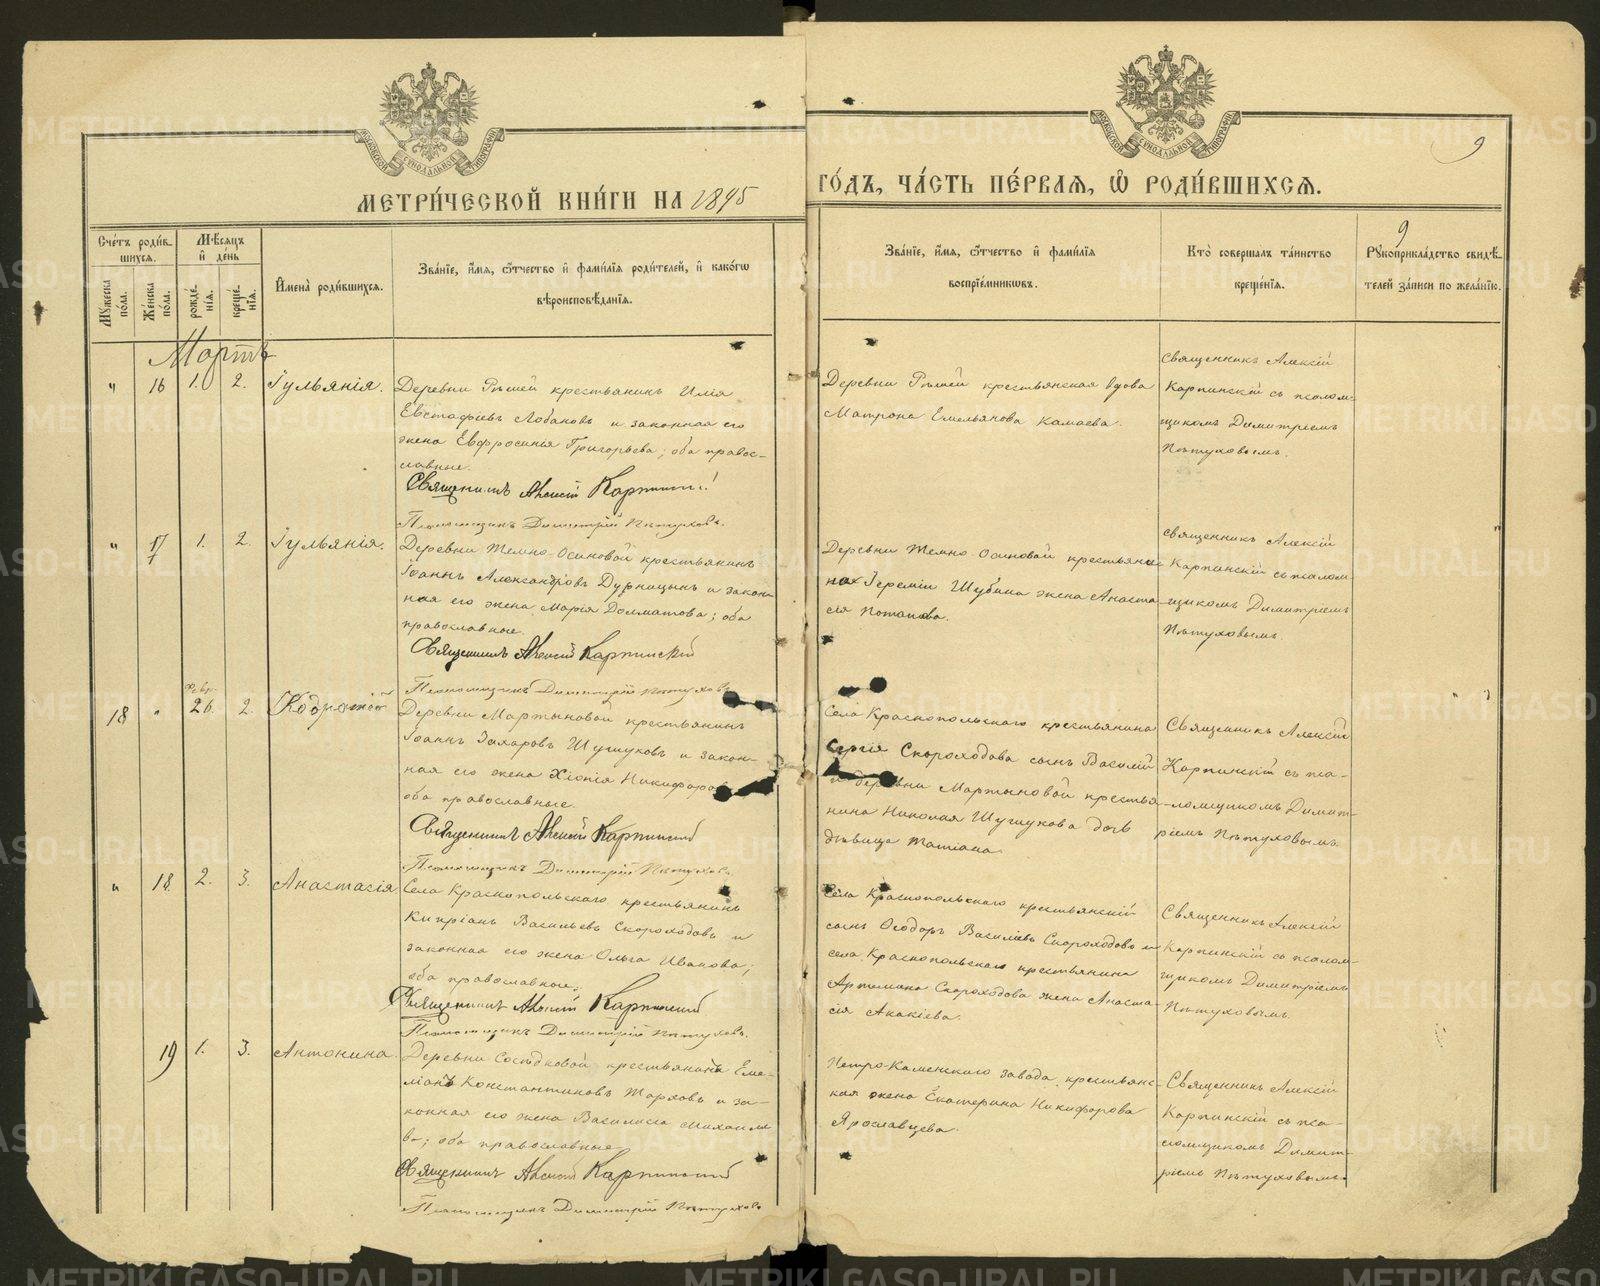 МЕТРИ́ЧЕСКОЙ КНИ́ГИ НА 1895 ГО́ДЪ, ЧА́СТЬ ПЕ́РВАЯ, Ѽ РОДИ́ВШИХСЯ.
9
9
Сче́тъ роди́в-
шихся.
Мꙋ́жеска по́ла.
Же́нска по́ла.
Мѣ́сяцъ и де́нь
рожде́нїя.
креще́нїя.
И҆мена̀ роди́вшихся.
Зва́нїе, и҆́мя, ѻ҆́тчество и҆ фами́лїя роди́телей, и҆ како́гѡ
вѣроисповѣ́данїя.
Зва́нїе, и҆́мя, ѻ҆́тчество и҆ фами́лїя
воспрїе́мникѡвъ.
Кто̀ соверша́лъ та́инство
креще́нїя.
Рꙋкоприкла́дство свидѣ́-
телей за́писи по жела́нїю.
Мартъ
" 16 1. 2. Іульянія.
Деревни Рѣшей крестьянинъ Илія
Евстафіевъ Лобановъ и законная его
жена Евфросинья Григорьева; оба правос-
лавные.
Священникъ Алексій Карпинскій
Псаломщикъ Димитрій Пѣтуховъ.
Деревни Рѣшей крестьянская вдова
Матрона Емельянова Камаева.
Священникъ Алексій
Карпинскій съ псалом-
щикомъ Димитріемъ
Пѣтуховымъ.
" 17 1. 2. Іульянія.
Деревни Темно-Осиновой крестьянинъ
Іоаннъ Александровъ Дурницынъ и закон-
ная его жена Марія Долматова; оба
православные.
Священникъ Алексій Карпинскій
Псаломщикъ Димитрій Пѣтуховъ
Деревни Темно-Осиновой крестьяни-
на Іереміи Шубина жена Анаста-
сія Потапова.
Священникъ Алексій
Карпинскій съ псалом-
щикомъ Димитріемъ
Пѣтуховымъ
18 " Февр. 26. 2. Кодратій
Деревни Мартьяновой крестьянинъ
Іоаннъ Захаровъ Шушуковъ и закон-
ная его жена Хіонія Никифорова
оба православные.
Священникъ Алексій Карпинскій
Псаломщикъ Димитрій Пѣтуховъ.
Села Краснопольскаго крестьянина
Сергія Скороходова сынъ Василій
и деревни Мартьяновой крестья-
нина Николая Шушукова дочь
дѣвица Татіана.
Священникъ Алексій
Карпинскій съ пса-
ломщикомъ Димит-
ріемъ Пѣтуховымъ
" 18. 2. 3. Анастасія
Села Краснопольскаго крестьянинъ
Кипріанъ Васильевъ Скороходовъ и
законная его жена Ольга Иванова;
оба православные.
Священникъ Алексій Карпинскій
Псаломщикъ Димитрій Пѣтуховъ.
Села Краснопольскаго крестьянскій
сынъ Ѳеодоръ Василіевъ Скороходовъ и
села Краснопольскаго крестьянина
Артемона Скороходова жена Анаста-
сія Акакіева.
Священникъ Алексій
Карпинскій съ псалом-
щикомъ Димитріемъ
Пѣтуховымъ.
19 1. 3. Антонина.
Деревни Сосѣдковой крестьянинъ Еме-
ліанъ Константиновъ Тарховъ и за-
конная его жена Василиса Михаиле-
ва; оба православные
Священникъ Алексій Карпинскій
Псаломщикъ Димитрій Пѣтуховъ
Петро-Каменскаго завода крестьянс-
кая жена Екатерина Никифорова
Ярославцева.
Священникъ Алексій
Карпинскій съ пса-
ломщикомъ Димит-
ріемъ Пѣтуховымъ.
METRIKI.GASO-URAL.RU